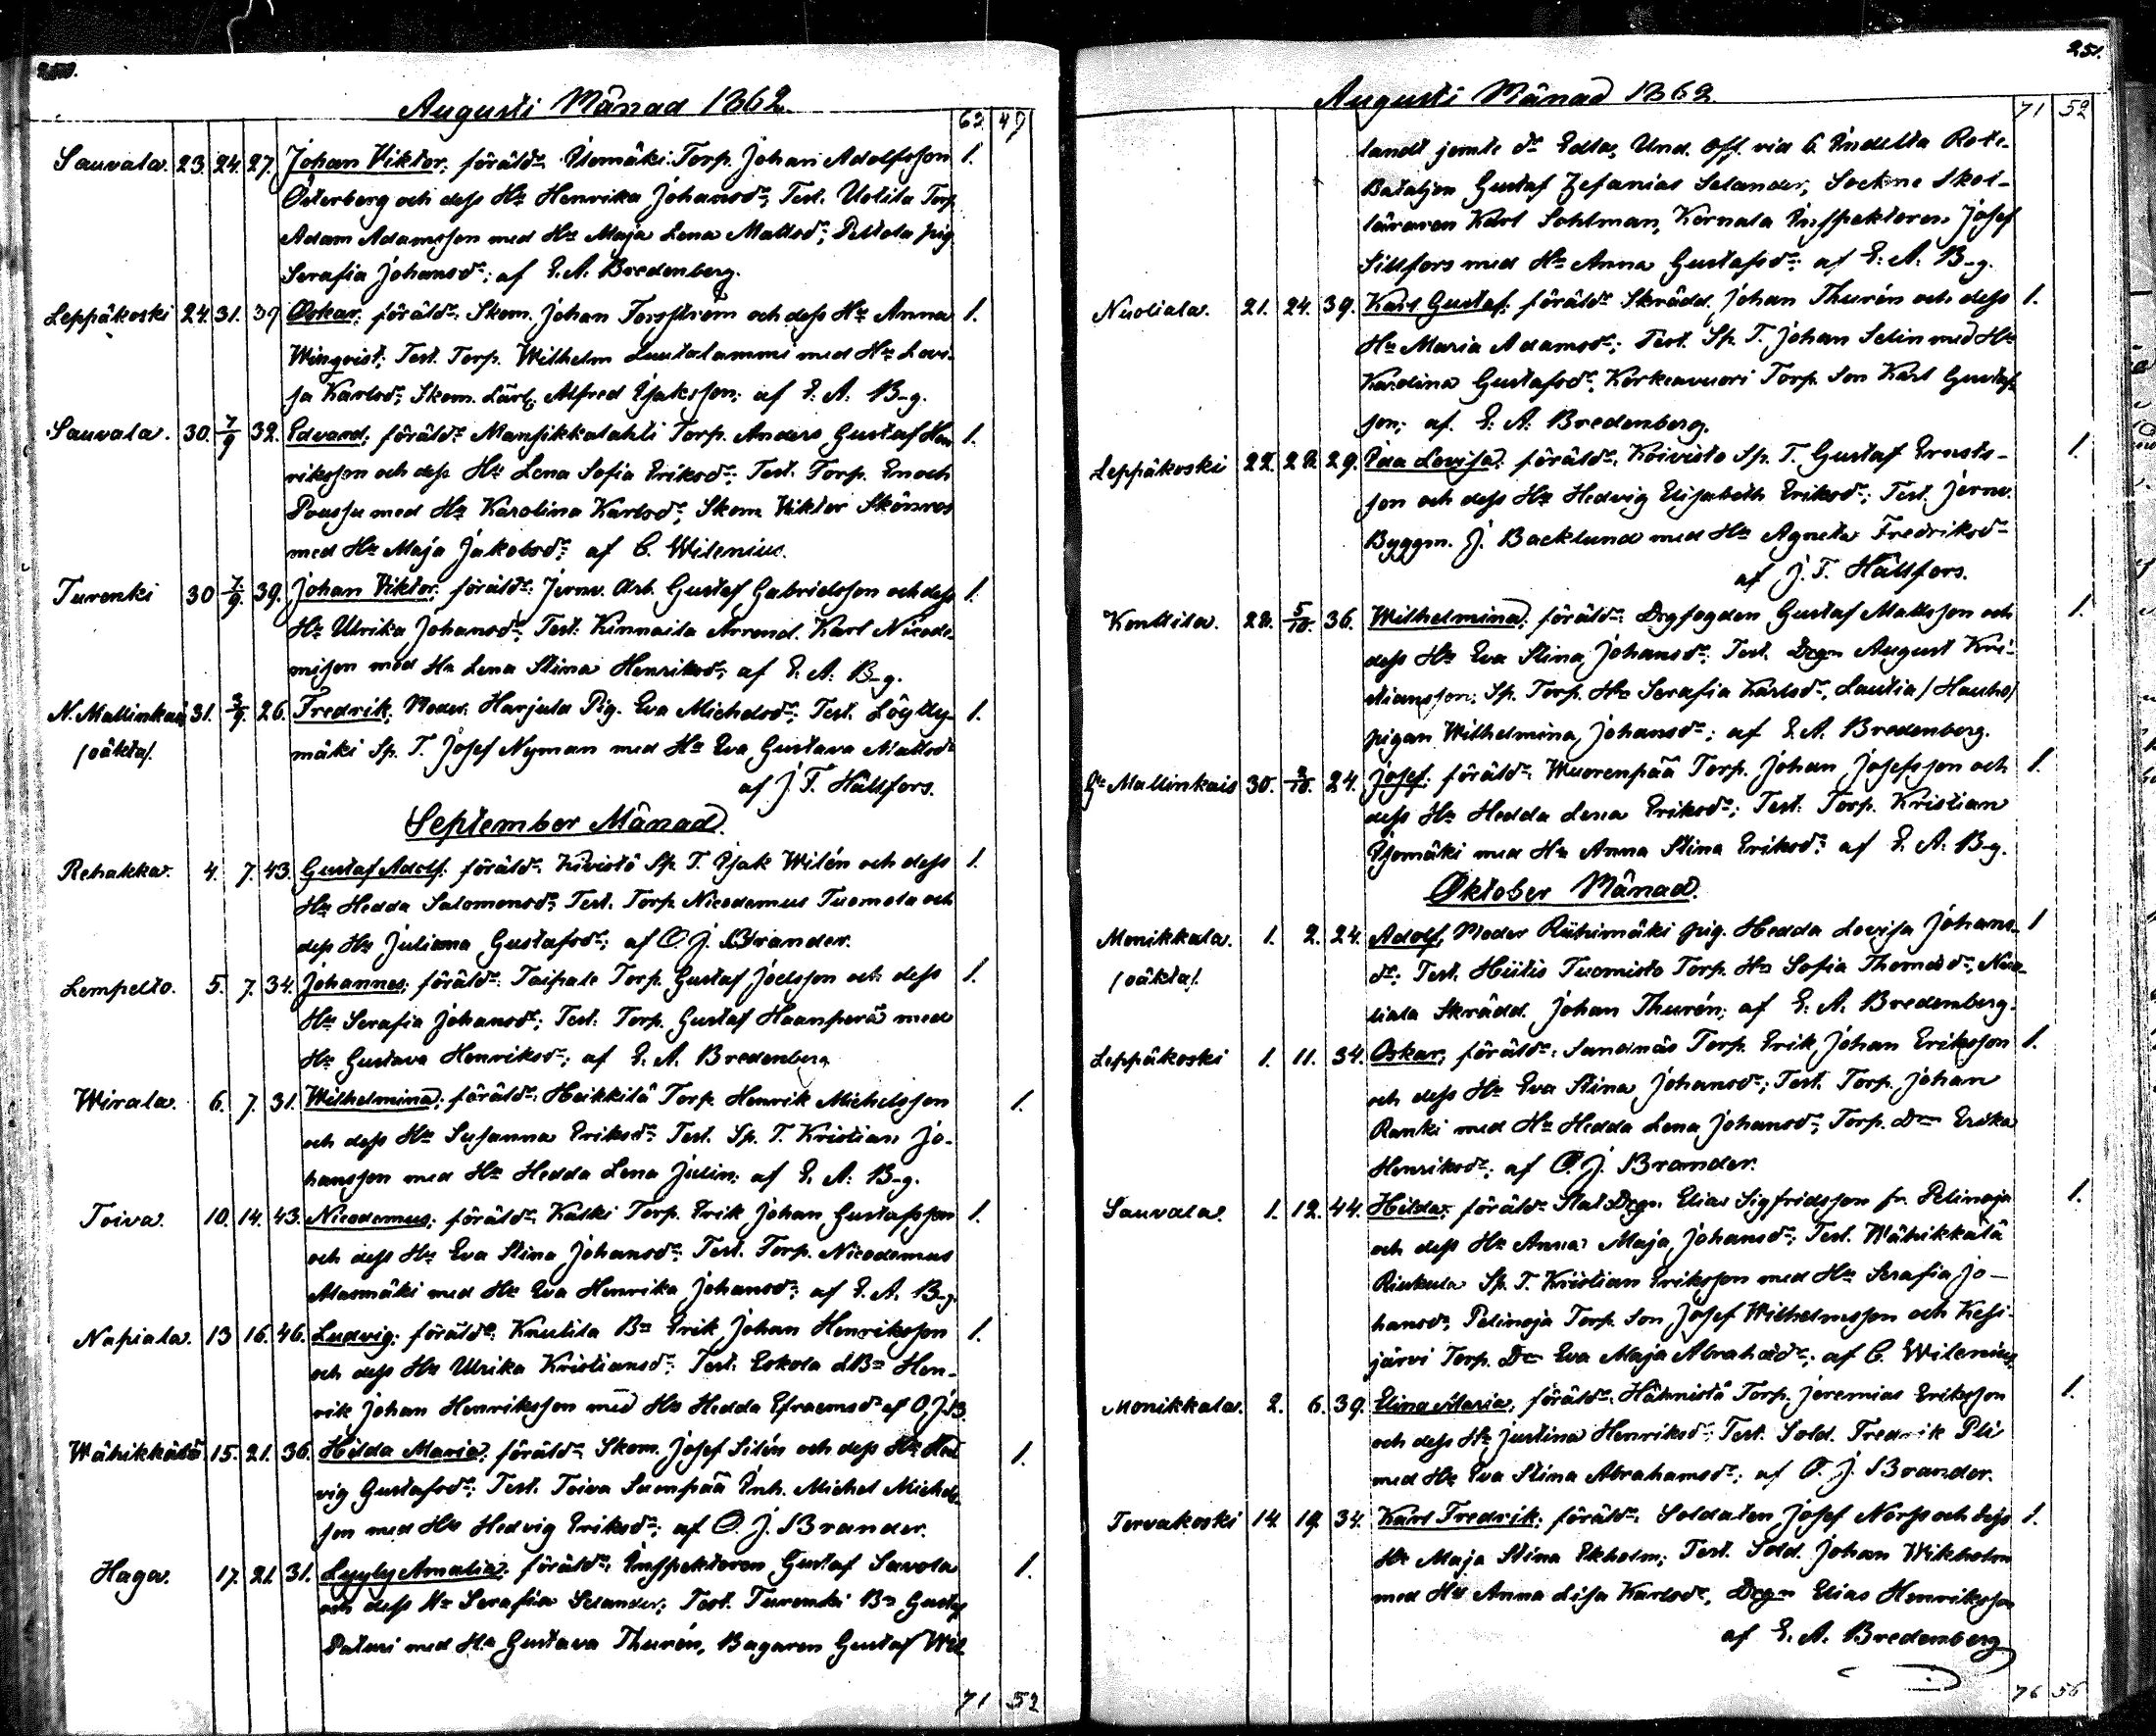 250.
Augusti Månad 1862.
62 47
Sauvala. 23. 24. 27. Johan Viktor; föräldr: Isomäki Torp. Johan Adolfsson 1.
Österberg och dess Hu Henrika Johansdr; Test. Uotila Torp.
Adam Adamsson med Hu Maja Lena Mattsdr; Peltola pig.
Serafia Johansdr; af E. A. Bredenberg.
Leppäkoski 24. 31. 37 Oskar; föräldr: Skom. Johan Forsström och dess Hu Anna 1.
Winqvist; Test. Torp. Wilhelm Luutalammi med Hu Lovi-
sa Karlsdr; Skom. Lärl. Alfred Isaksson; af E. A. B-g.
Sauvala. 30. 7/9 32. Edvard; föräldr: Mansikkalahti Torp. Anders Gustaf Hen- 1.
riksson och dess Hu Lena Sofia Eriksdr; Test. Torp. Enoch
Poussu med Hu Karolina Karlsdr; Skom Viktor Skönros
med Hu Maja Jakobsdr; af C. Wilenius.
Turenki 30 7/9. 39. Johan Viktor; föräldr: Jernv. Arb. Gustaf Gabrielsson och dess 1.
Hu Ulrika Johansdr; Test. Kinnaila Arrend. Karl Nicode-
misson med Hu Lena Stina Henriksdr; af E. A. B-g.
N. Mallinkais 31. 3/9. 26. Fredrik; Moder: Harjula Pig. Eva Michelsdr; Test. Löytty- 1.
/oäkta/. mäki Sp. T. Josef Nyman med Hu Eva Gustava Mattsdr
af J. T. Hällfors.
September Månad.
Rehakka. 4. 7. 43. Gustaf Adolf; föräldr: Kivistö Sp. T. Isak Wilén och dess 1.
Hu Hedda Salomonsdr; Test. Torp. Nicodemus Tuomola och
dess Hu Juliana Gustafsdr; af O. J. Brander.
Lempelto. 5. 7. 34. Johannes; föräldr: Taipale Torp. Gustaf Joelsson och dess 1.
Hu Serafia Johansdr; Test. Torp. Gustaf Haanperä med
Hu Gustava Henriksdr; af E. A. Bredenberg
Wirala. 6. 7. 31. Wilhelmina; föräldr: Heikkilä Torp. Henrik Michelsson 1.
och dess Hu Susanna Eriksdr; Test. Sp. T. Kristian Jo-
hansson med Hu Hedda Lena Julin; af E. A. B-g.
Toiva. 10. 14. 43. Nicodemus; föräldr: Kalki Torp. Erik Johan Gustafsson 1.
och dess Hu Eva Stina Johansdr; Test. Torp. Nicodemus
Masmäki med Hu Eva Henrika Johansdr; af E. A. B-g.
Napiala. 13 16. 46. Ludvig; föräldr: Knutila Bn Erik Johan Henriksson 1.
och dess Hu Ulrika Kristiansdr; Test. Eskola dBn Hen-
rik Johan Henriksson med Hu Hedda Efraemsdr af O. J. B.
Wähikkälä. 15. 21. 36. Hilda Maria; föräldr: Skom. Josef Silén och dess Hu Hed- 1.
vig Gustafsdr; Test. Toiva Suonpää Inh. Michel Michels-
son med Hu Hedvig Eriksdr; af O. J. Brander.
Haga. 17. 21. 31. Lyyly Amalia; föräldr: Inspektoren Gustaf Savola 1.
och dess Hu Serafia Selander; Test. Turenki Bn Gustaf
Paturi med Hu Gustava Thurén, Bagaren Gustaf Wil-
71 52
251.
Augusti Månad 1862.
71 52
landt jemte dr Edla, Und. Off. vid 6. Indelta Rote-
Bataljon Gustaf Zefanias Selander, Sockne Skol-
läraren Karl Sohlman, Kernala Inspektoren Josef
Sillfors med Hu Anna Gustafsdr; af E. A. B-g.
Nuoliala. 21. 24. 39. Karl Gustaf; föräldr: Skrädd. Johan Thurén och dess 1.
Hu Maria Adamsdr; Test. Sp. T. Johan Selin med Hu
Karolina Gustafsdr, Korkeavuori Torp. Son Karl Gustafs-
son; af E. A. Bredenberg.
Leppäkoski 22. 28. 29. Ida Lovisa; föräldr: Koivisto Sp. T. Gustaf Ernsts- 1.
son och dess Hu Hedvig Elisabeth Eriksdr; Test. Jernv.
Byggm. J. Backlund med Hu Agneta Fredriksdr
af J. T. Hällfors.
Konttila. 28. 5/10. 36. Wilhelmina; föräldr: Drgfogden Gustaf Mattsson och 1.
dess Hu Eva Stina Johansdr; Test. Drgn August Kri-
stiansson; Sp. Torp. Hu Serafia Karlsdr, Lautia /Hauho/
pigan Wilhelmina Johansdr; af E. A. Bredenberg.
Mallinkais 30. 3/10. 24. Josef; föräldr: Wuorenpää Torp. Johan Josefsson och 1.
dess Hu Hedda Lena Eriksdr; Test. Torp. Kristian
Isomäki med Hu Anna Stina Eriksdr; af E. A. B-g.
Oktober Månad.
Monikkala. 1. 2. 24. Adolf; Moder Riihimäki pig. Hedda Lovisa Johans- 1
/oäkta/. dr; Test. Hiitis Tuomisto Torp. Hu Sofia Thomasdr, Nuo-
liala Skrädd. Johan Thurén; af E. A. Bredenberg.
Leppäkoski 1. 11. 34. Oskar; föräldr: Sandnäs Torp. Erik Johan Eriksson 1.
och dess Hu Eva Stina Johansdr; Test. Torp. Johan
Ranki med Hu Hedda Lena Johansdr; Torp. Dr Erika
Henriksdr; af O. J. Brander.
Sauvala. 1. 12. 44. Hilda; föräldr: StatDrgn. Elias Sigfridsson fr. Pelinoja 1.
och dess Hu Anna Maja Johansdr; Test. Wähikkälä
Riukula Sp. T. Kristian Eriksson med Hu Serafia Jo-
hansdr, Pelinoja Torp. Son Josef Wilhelmsson och Kesi-
järvi Torp. Dr Eva Maja Abrahadr; af C. Wilenius.
Monikkala. 2. 6. 39. Elina Maria; föräldr: Hähnistö Torp. Jeremias Eriksson 1.
och dess Hu Justina Henriksdr; Test. Sold. Fredrik Pli
med Hu Eva Stina Abrahamsdr; af O. J. Brander.
Tervakoski 14. 19. 34. Karl Fredrik; föräldr: Soldaten Josef Norss och dess 1.
Hu Maja Stina Ekholm; Test. Sold. Johan Wikholm
med Hu Anna Lisa Karlsdr, Drgn Elias Henriksson
af E. A. Bredenberg
76 56